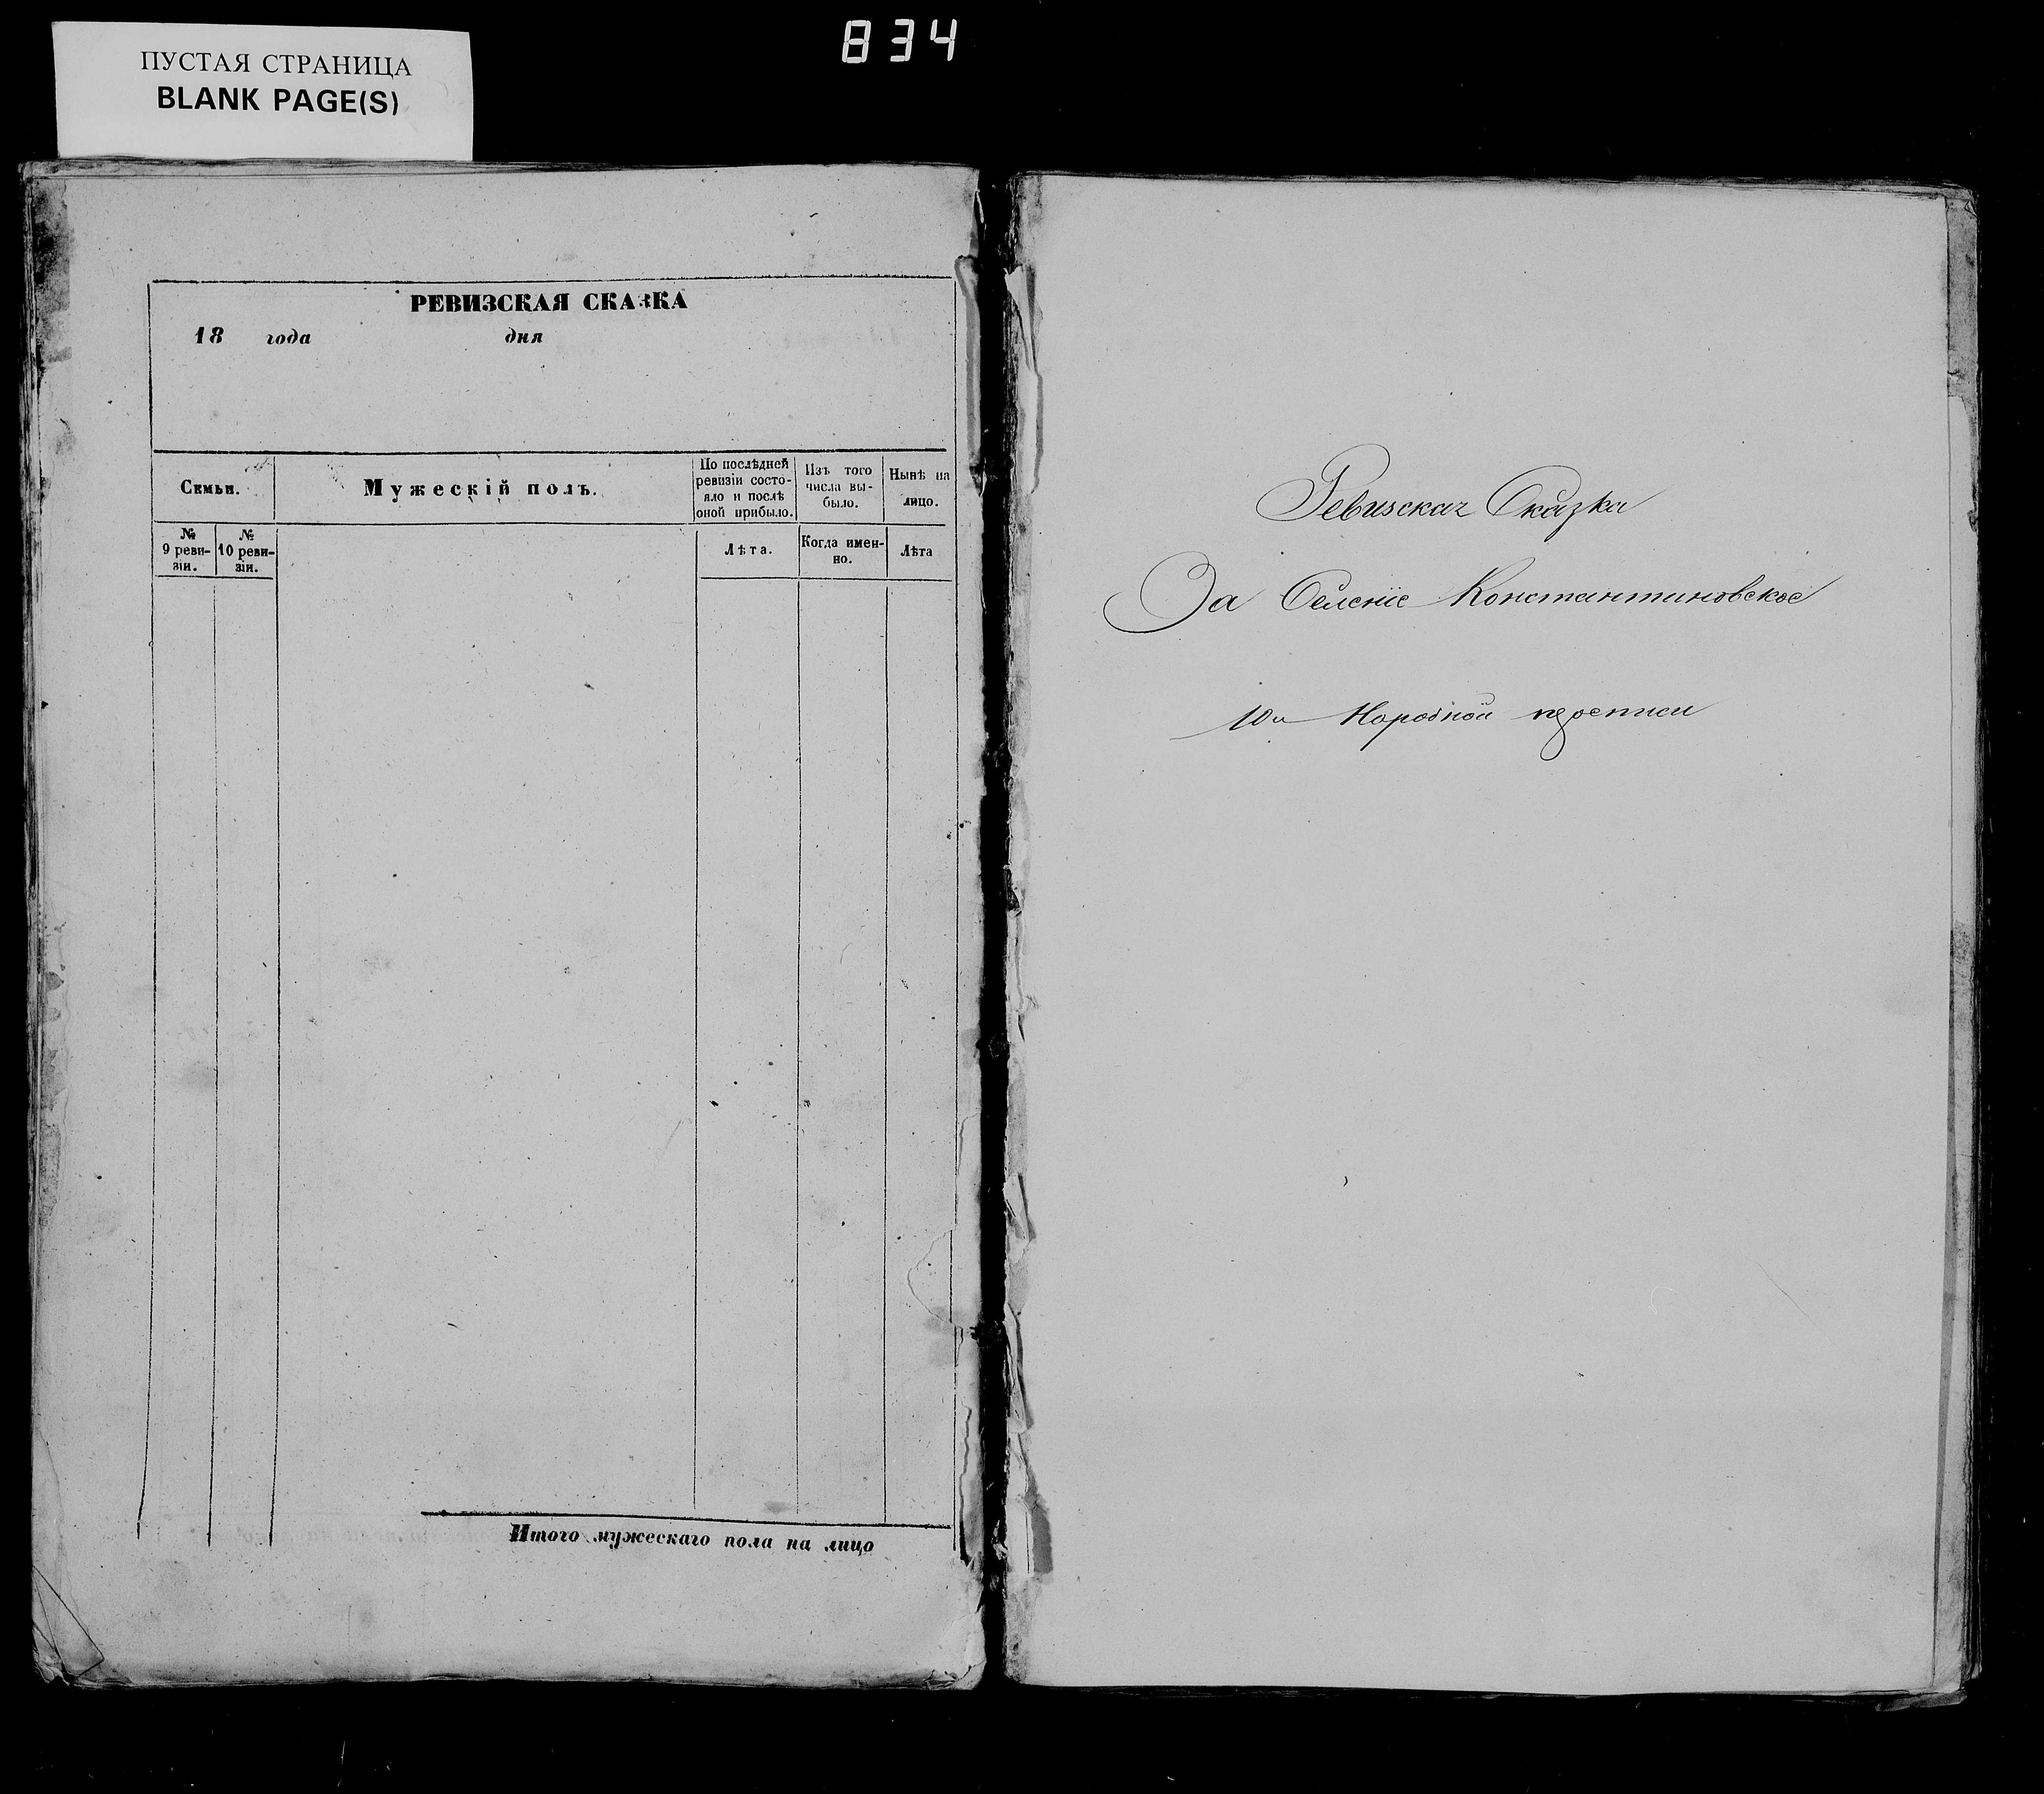 834
ПУСТАЯ СТРАНИЦА
BLANK PAGE(S)
РЕВИЗСКАЯ СКАЗКА
18 года дня
Семьи.
Мужескій полъ.
По послѣдней
ревизіи состо-
яло и послѣ
оной прибыло.
Изъ того
числа вы-
было.
Нынѣ на
лицо.
№
9 реви-
зіи.
№
10 реви-
зіи.
Лѣта.
Когда имен-
но.
Лѣта
Итого мужескаго пола на лицо
Ревизская Сказка
За Селеніе Константиновское
10й Народной